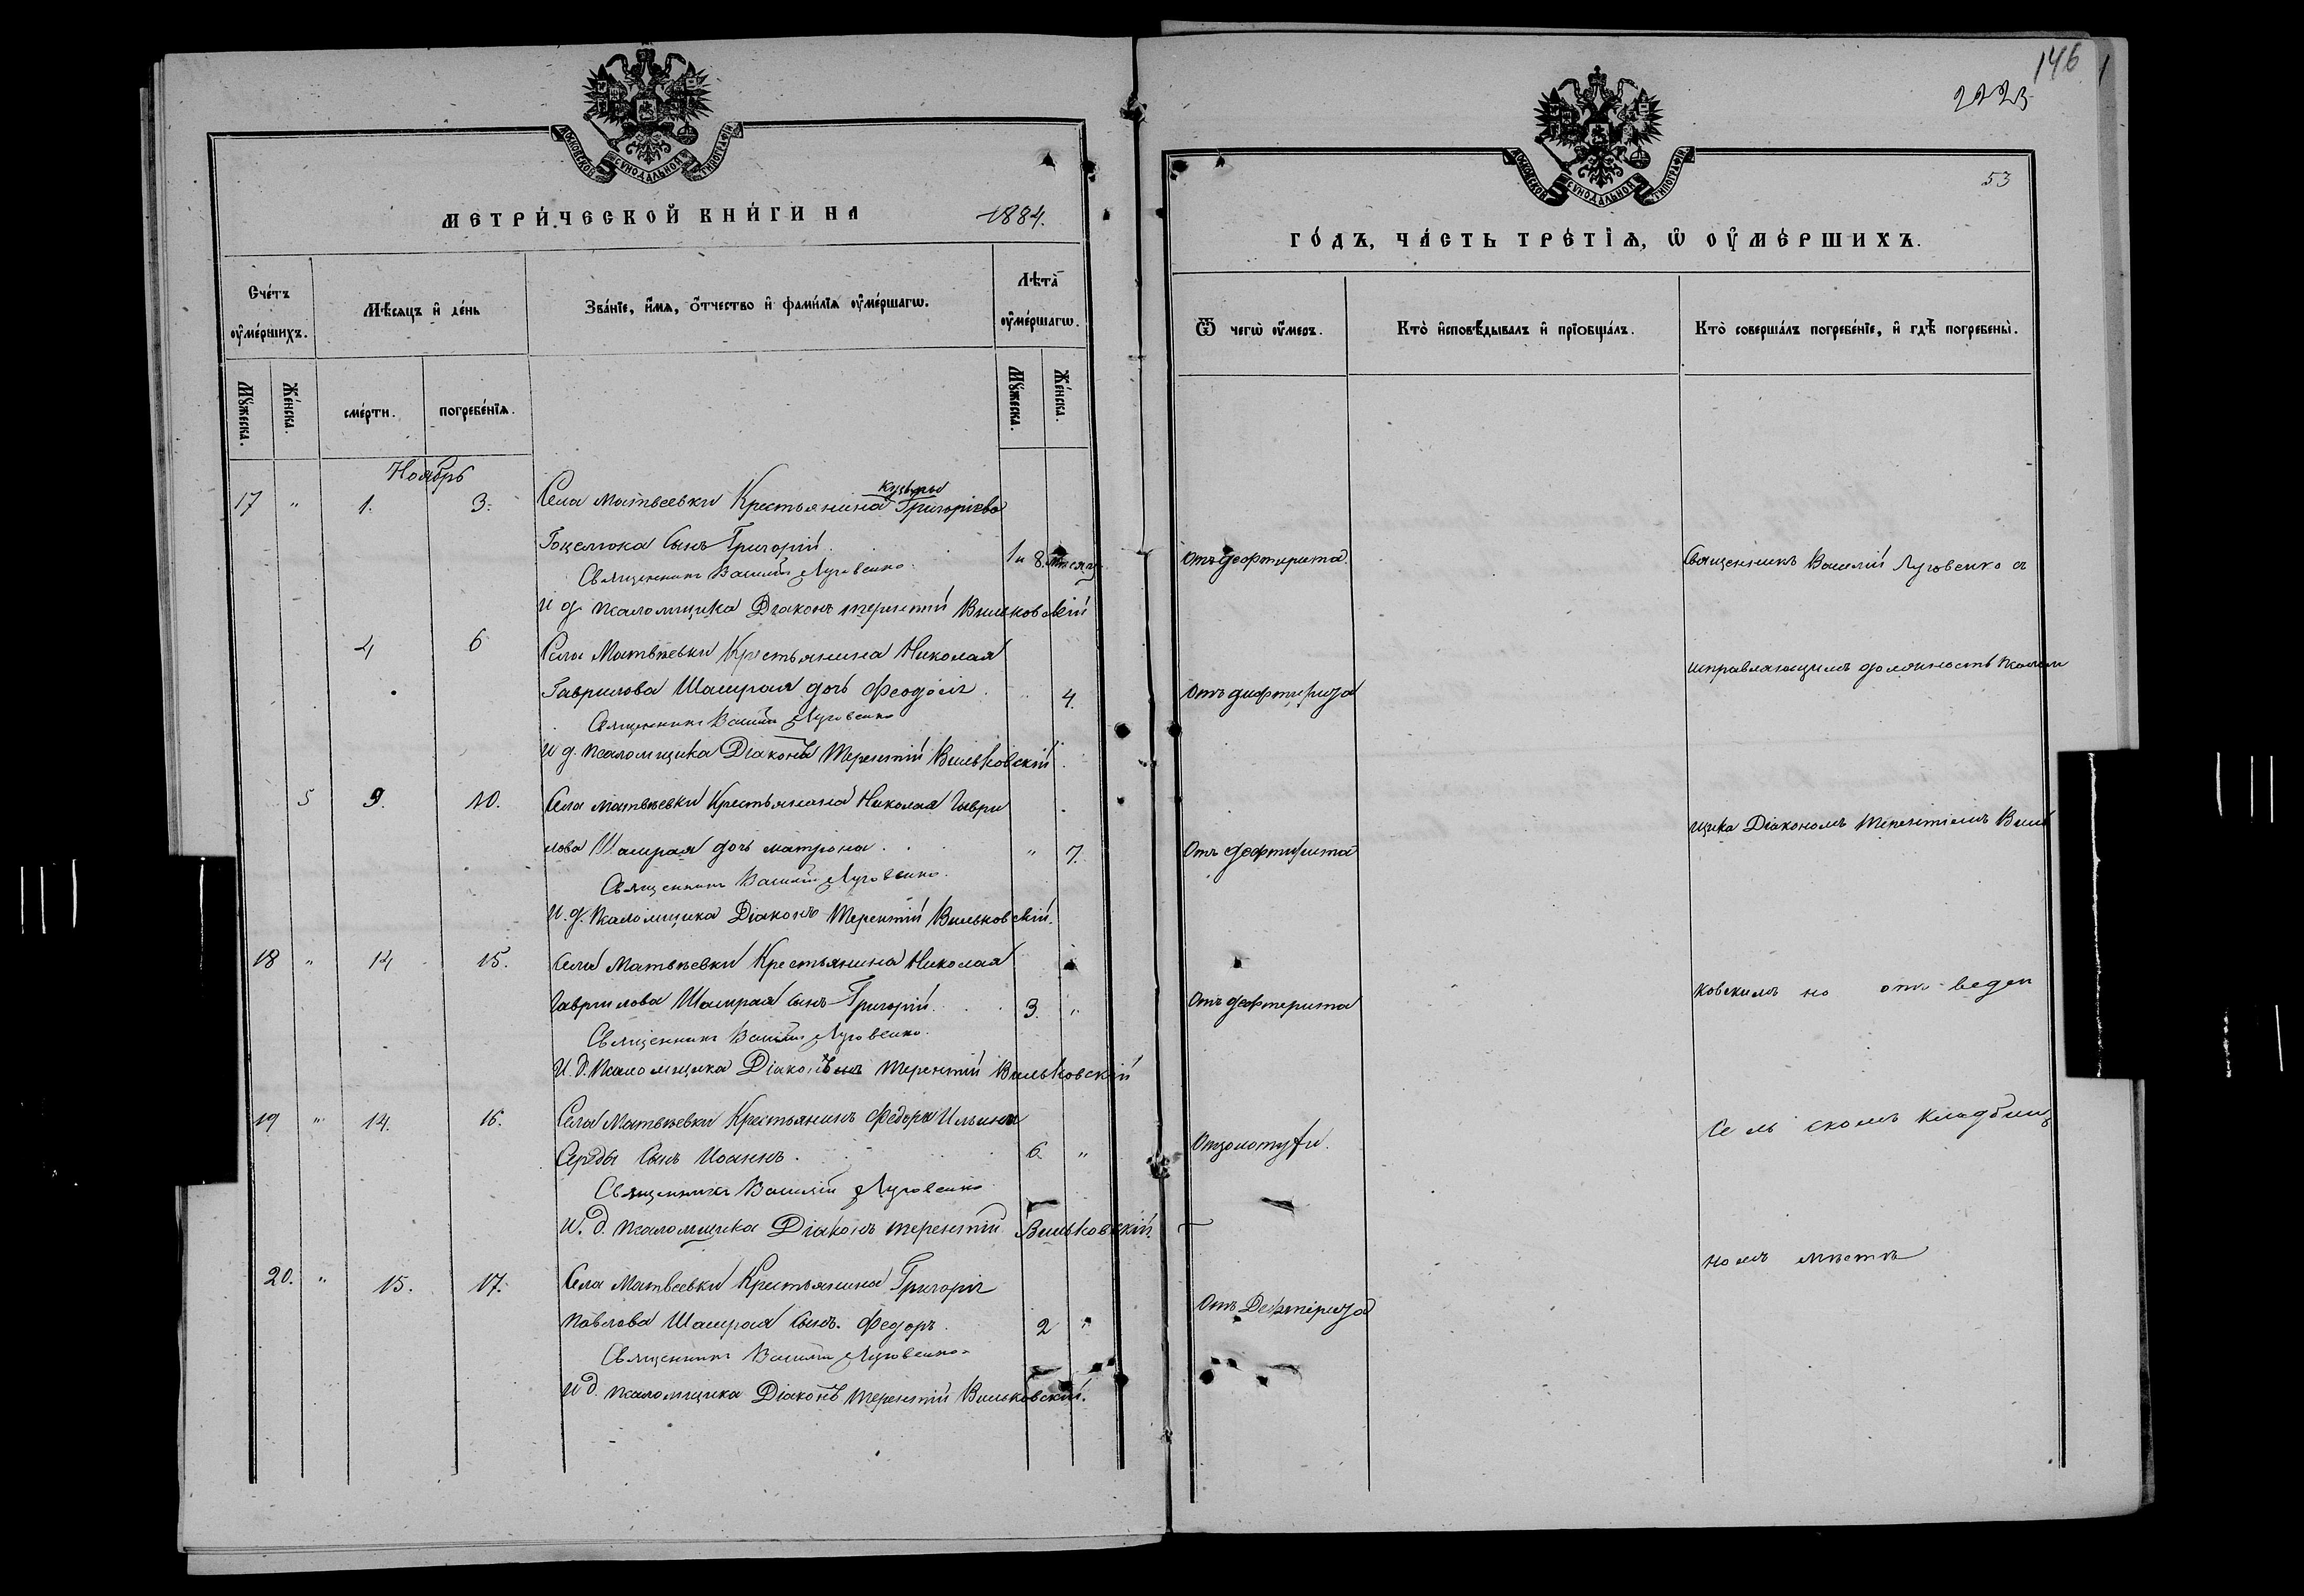 146
2223
МОСКОВСКОЙ СУНОДАЛЬНОЙ ТИПОГРАФІИ
МЕТРИ́ЧЕСКОЙ КНИ́ГИ НА 1884.
Счéтъ ᲂу҆мéршихъ.
Мѣ́сяцъ и҆ дéнь
Звáнїе, и҆́мя, ѻ҆́тчество и҆ фами́лїя ᲂу҆мéршагѡ.
Лѣ́та ᲂу҆мéршагѡ.
Мꙋ́жеска.
Жéнска.
смéрти.
погребéнїя.
Мꙋ́жеска.
Жéнска.
Ноябрь
17 " 1. 3. Села Матвеевки Крестьянина Кузьмы Григоріева
Гоцелюка Сынъ Григорій. 1 и 8. месяц
Священникъ Василій Луговенко
И д. Псаломщика Діаконъ Терентій Вильковскій
4 6 Села Матвѣевки Крестьянина Николая
Гаврилова Шамрая дочь Феодосія 4.
Священникъ Василій Луговенко
И д. Псаломщика Діаконъ Терентій Вильковскій
5 9. 10. Села Матвѣевки Крестьянина Николая Гаври
лова Шамрая дочь Матрона. " 7.
Священникъ Василій Луговенко.
И. д. Псаломщика Діаконъ Терентій Вильковскій.
18 " 14 15. Села Матвѣевки Крестьянина Николая
Гаврилова Шамрая Сынъ Григорій. 3. "
Священникъ Василій Луговенко.
И. д. Псаломщика Діаконъ Терентій Вильковскій
19 " 14. 16. Села Матвѣевки Крестьянинъ Федора Ильина
Середы Сынъ Иоаннъ. 6. "
Священникъ Василій Луговенко
И. д. Псаломщика Діаконъ Терентій Вильковскій.
20. " 15. 17. Села Матвеевки Крестьянина Григорія
Павлова Шамрая Сынъ. Федоръ. 2 "
Священникъ Василій Луговенко.
И д. Псаломщика Діаконъ Терентій Вильковскій.
МОСКОВСКОЙ СУНОДАЛЬНОЙ ТИПОГРАФІИ
53
ГÓДЪ, ЧÁСТЬ ТРÉТЇЯ, Ѡ҆ ОУ҆МÉРШИХЪ.
Ѿ чегѡ̀ ᲂу҆́меръ.
Ктò и҆сповѣ́дывалъ и҆ прїѻбщáлъ.
Ктò совершáлъ погребéнїе, и҆ гдѣ̀ погребены̀.
Отъ дефтерита.
Священникъ Василій Луговенко съ
исправляющимъ должность Псалом
Отъ дифтерита
щика Діакономъ Терентіемъ Виль
Отъ дефтерита
ковскимъ на отъ-веден
Отъ дефтерита
Се ль скомъ кладбищ
Отъ золотухи.
номъ мѣстѣ
Отъ Дефтерита